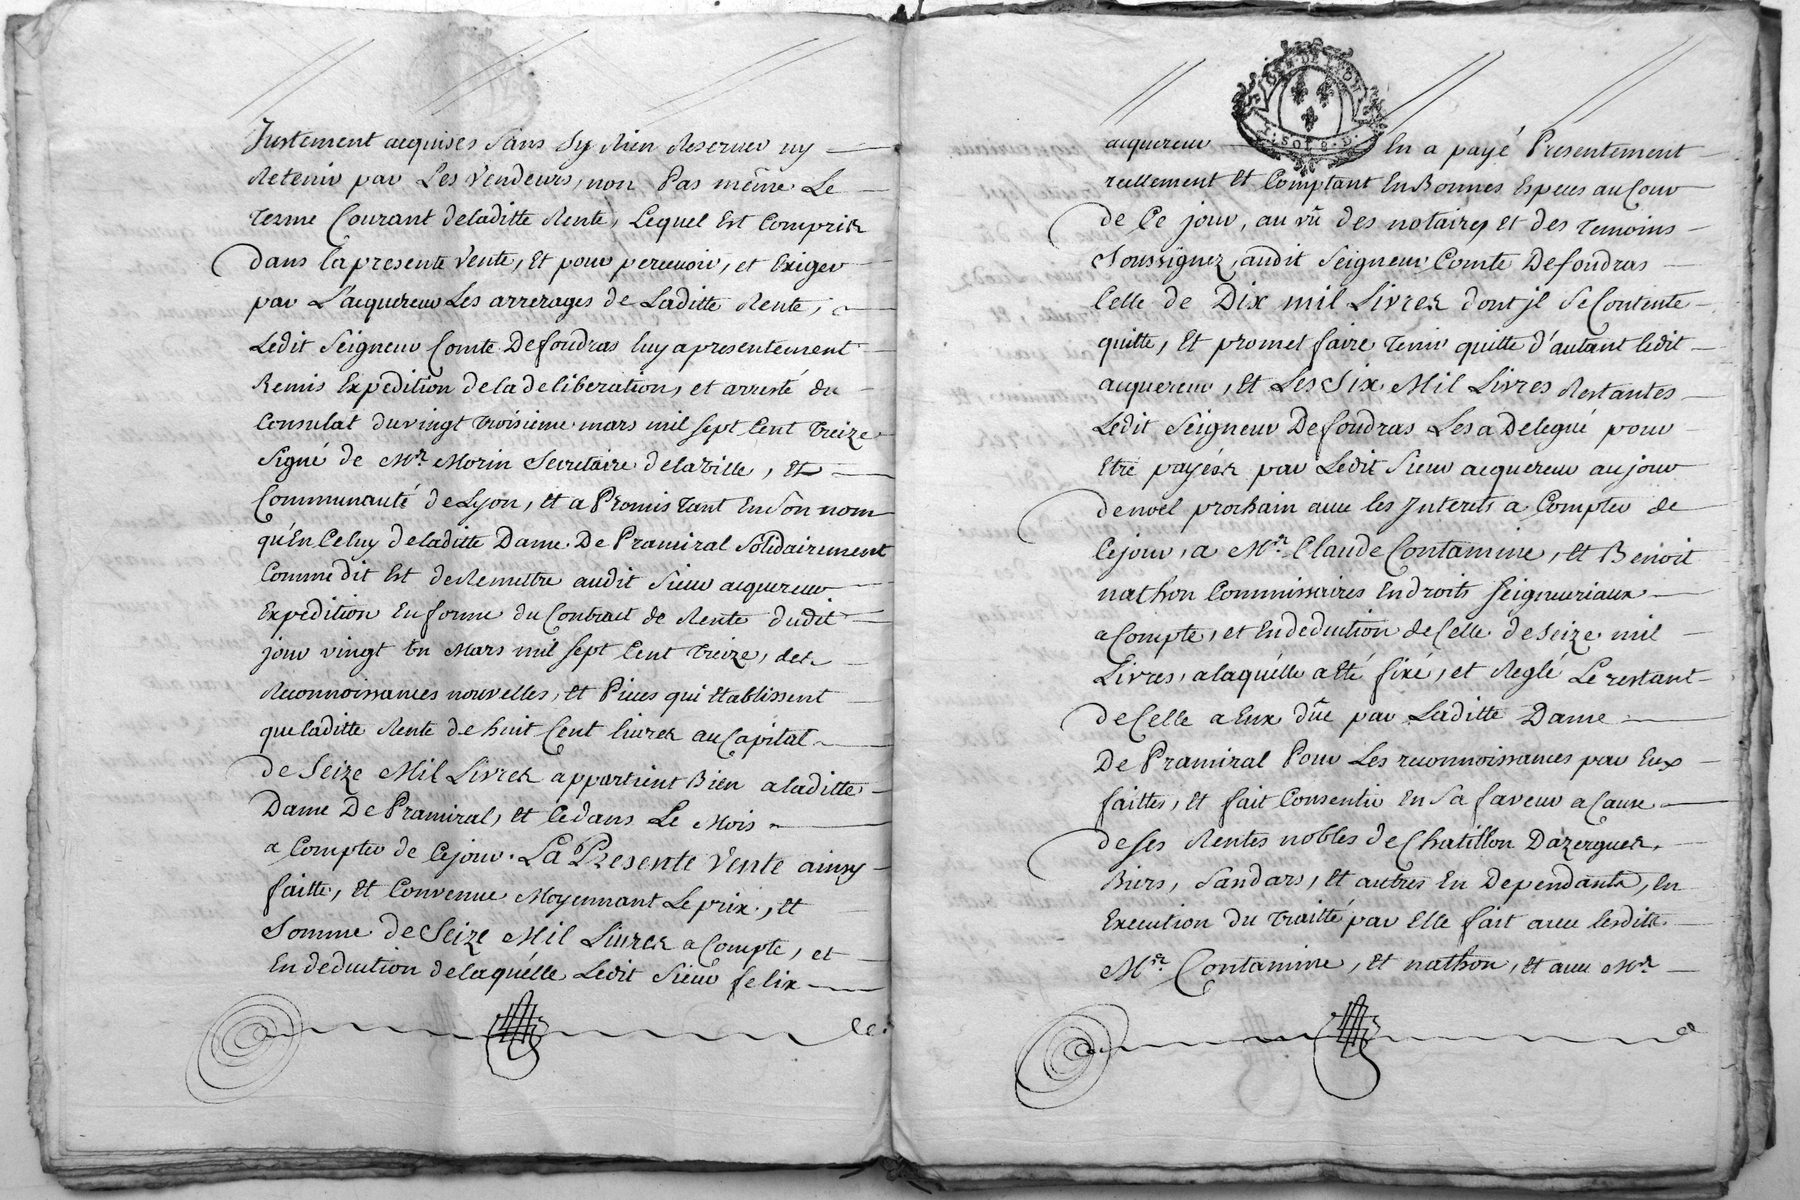 Justement acquises Sans Sy Rien Reserver ny
Retenir par Les Vendeurs, non Pas même Le
Terme Courant deladitte Rente, Lequel Est Compris
dans la presente Vente, Et pour percevoir, et Exiger
par L'acquereur Les arrerages de Laditte Rente,
Ledit Seigneur Comte Defoudras luy a presentement
Remis Expedition de la deliberation, et arresté du
Consulat du vingt Troisieme mars mil sept Cent Treize
Signé de Mr. Morin Secretaire de la Ville, Et
Communauté de Lyon, Et a Promis Tant En Son nom
qu'En Celuy de laditte Dame De Pramiral Solidairement
Comme dit Est de Remettre audit Sieur acquereur
Expedition En forme du Contract de Rente dudit
jour vingt un Mars mil sept Cent Treize, des
Reconnoissances nouvelles, et Pieces qui Etablissent
que laditte Rente de huit Cent livres au Capital
de Seize Mil Livres appartient Bien a laditte
Dame De Pramiral, et Ce dans Le Mois
a Compter de Ce jour. La Presente Vente ainsy
faitte, Et Convenue Moyennant Le prix, Et
Somme de Seize Mil Livres a Compte, et
En deduction de laquelle Ledit Sieur felix
GEN. DE LYON
1. SOL 8. D.
acquereur En a payé Presentement
reellement Et Comptant En Bonnes Especes au Cour
de Ce jour, au vû des notaires et des Temoins
Soussignez, audit Seigneur Comte Defoudras
Celle de Dix mil Livres dont jl Se Contente
quitte, Et promet faire Tenir quitte d'autant ledit
acquereur, Et Les Six Mil Livres Restantes
Ledit Seigneur Defoudras Les a Delegué pour
Etre payées par Ledit Sieur acquereur au jour
de noel prochain avec les Interets a Compter de
Ce jour, a Mrs. Claude Contamine, Et Benoit
nathon Commissaires En droits Seigneuriaux
a Compte, et En deduction de Celle de Seize mil
Livres, a laquelle a Eté fixé, et Reglé Le restant
de Celle a Eux dûe par Laditte Dame
De Pramiral Pour Les reconnoissances par Eux
faittes, Et fait Consentir En Sa faveur a Cause
de Ses Rentes nobles de Chatillon Dazergues,
Sandars, Et autres En Dependants, En
Execution du Traitté par Elle fait avec lesdits
Mrs. Contamine, Et nathon, Et avec Mr